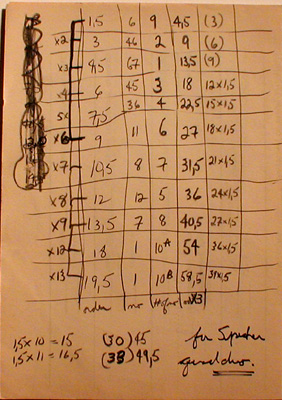 1,5 6 9 4,5 (3)
x2 3 46 2 9 (6)
x3 4,5 67 1 13,5 (9)
x4 6 45 3 18 12x1,5
5x 7,5 36 4 22,5 15x1,5
x6 9 11 6 27 18x1,5
x7 10,5 8 7 31,5 21x1,5
x8 12 12 5 36 24x1,5
x9 13,5 7 8 40,5 27x1,5
x12 18 1 10A 54 36x1,5
x13 19,5 1 10B 58,5 39x1,5
orden x3
1,5x10 = 15 (30) 45
1,5x11 = 16,5 (33) 49,5